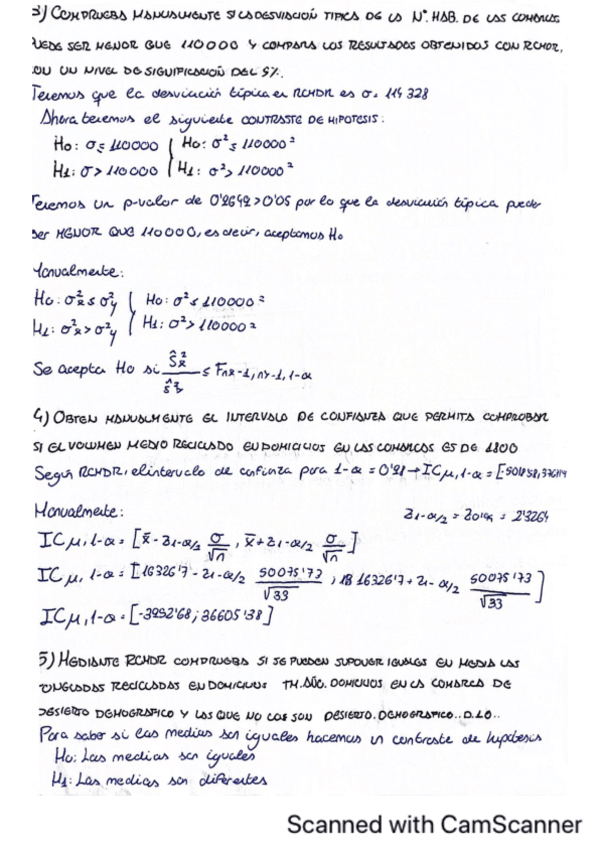 3) COMPRUEBA MANUALMENTE SI LA DESVIACIÓN TIPICA DE LA Nº. HAB. DE LAS COMARCAS
PUEDE SER MENOR QUE 110000 Y COMPARA LOS RESULTADOS OBTENIDOS CON RCMDR,
CON UN NIVEL DE SIGNIFICACIÓN DEL 5%.
Tenemos que la desviación típica en RCMDR es σ = 114 328
Ahora tenemos el siguiente CONTRASTE DE HIPOTESIS:
Ho: σ ≤ 110000 | Ho: σ² ≤ 110000²
H1: σ > 110000 | H1: σ² > 110000²
Tenemos un p-valor de 0'2642 > 0'05 por lo que la desviación típica puede
ser MENOR QUE 110000, es decir, aceptamos Ho
Manualmente:
Ho: σ²x ≤ σ²y | Ho: σ² ≤ 110000²
H1: σ²x > σ²y | H1: σ² > 110000²
Se acepta Ho si Ŝ²x / Ŝ²y ≤ Fnx-1, ny-1, 1-α
4) OBTEN MANUALMENTE EL INTERVALO DE CONFIANZA QUE PERMITA COMPROBAR
SI EL VOLUMEN MEDIO RECICLADO EN DOMICILIOS EN LAS COMARCAS ES DE 1800
Según RCMDR, el intervalo de confinza para 1-α = 0'98 → ICμ, 1-α =
Manualmente: z1-α/2 = = 2'3264
ICμ, 1-α = [x̄ - z1-α/2 σ/√n , x̄ + z1-α/2 σ/√n]
ICμ, 1-α = [16326'7 - z1-α/2 50075'73/√33 ; 16326'7 + z1-α/2 50075'73/√33]
ICμ, 1-α = [-3952'68 ; 36605'38]
5) MEDIANTE RCMDR COMPRUEBA SI SE PUEDEN SUPONER IGUALES EN MEDIA LAS
TONELADAS RECICLADAS EN DOMICILIOS TM.AÑO.DOMICILIOS EN LA COMARCA DE
DESIERTO DEMOGRAFICO Y LAS QUE NO LOS SON DESIERTO.DEMOGRAFICO..D.LO..
Para saber si las medias son iguales hacemos un contraste de hipótesis
Ho: Las medias son iguales
H1: Las medias son diferentes
Scanned with CamScanner